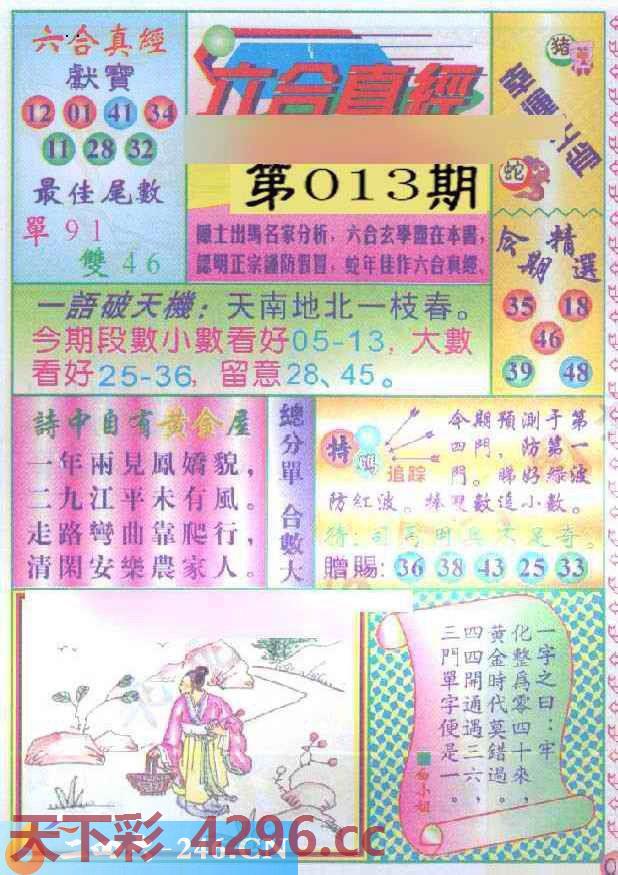 六合真經
獻寶
12 01 41 34
11 28 32
最佳尾數
單 91
雙 46
六合真經
第013期
隱士出馬名家分析,六合玄學盡在本書,
認明正宗謹防假冒,蛇年佳作六合真經。
豬
蛇
今期精選
35 18
46
39 48
一語破天機:天南地北一枝春。
今期段數小數看好05-13,大數
看好25-36,留意28、45。
詩中自有黃金屋
一年兩見鳳嬌貌,
二九江平未有風。
走路彎曲靠爬行,
清閑安樂農家人。
總分單 合數大
特
追踪
今期預測于第
四門,防第一
門。睇好綠波
防紅波。捧雙數追小數。
贈賜: 36 38 43 25 33
一字之曰:牢
化整爲零四十來,
黃金時代莫錯過。
四四開通遇三六,
三門單字便是一。
白小姐
天下彩 4296.cc
246.CN